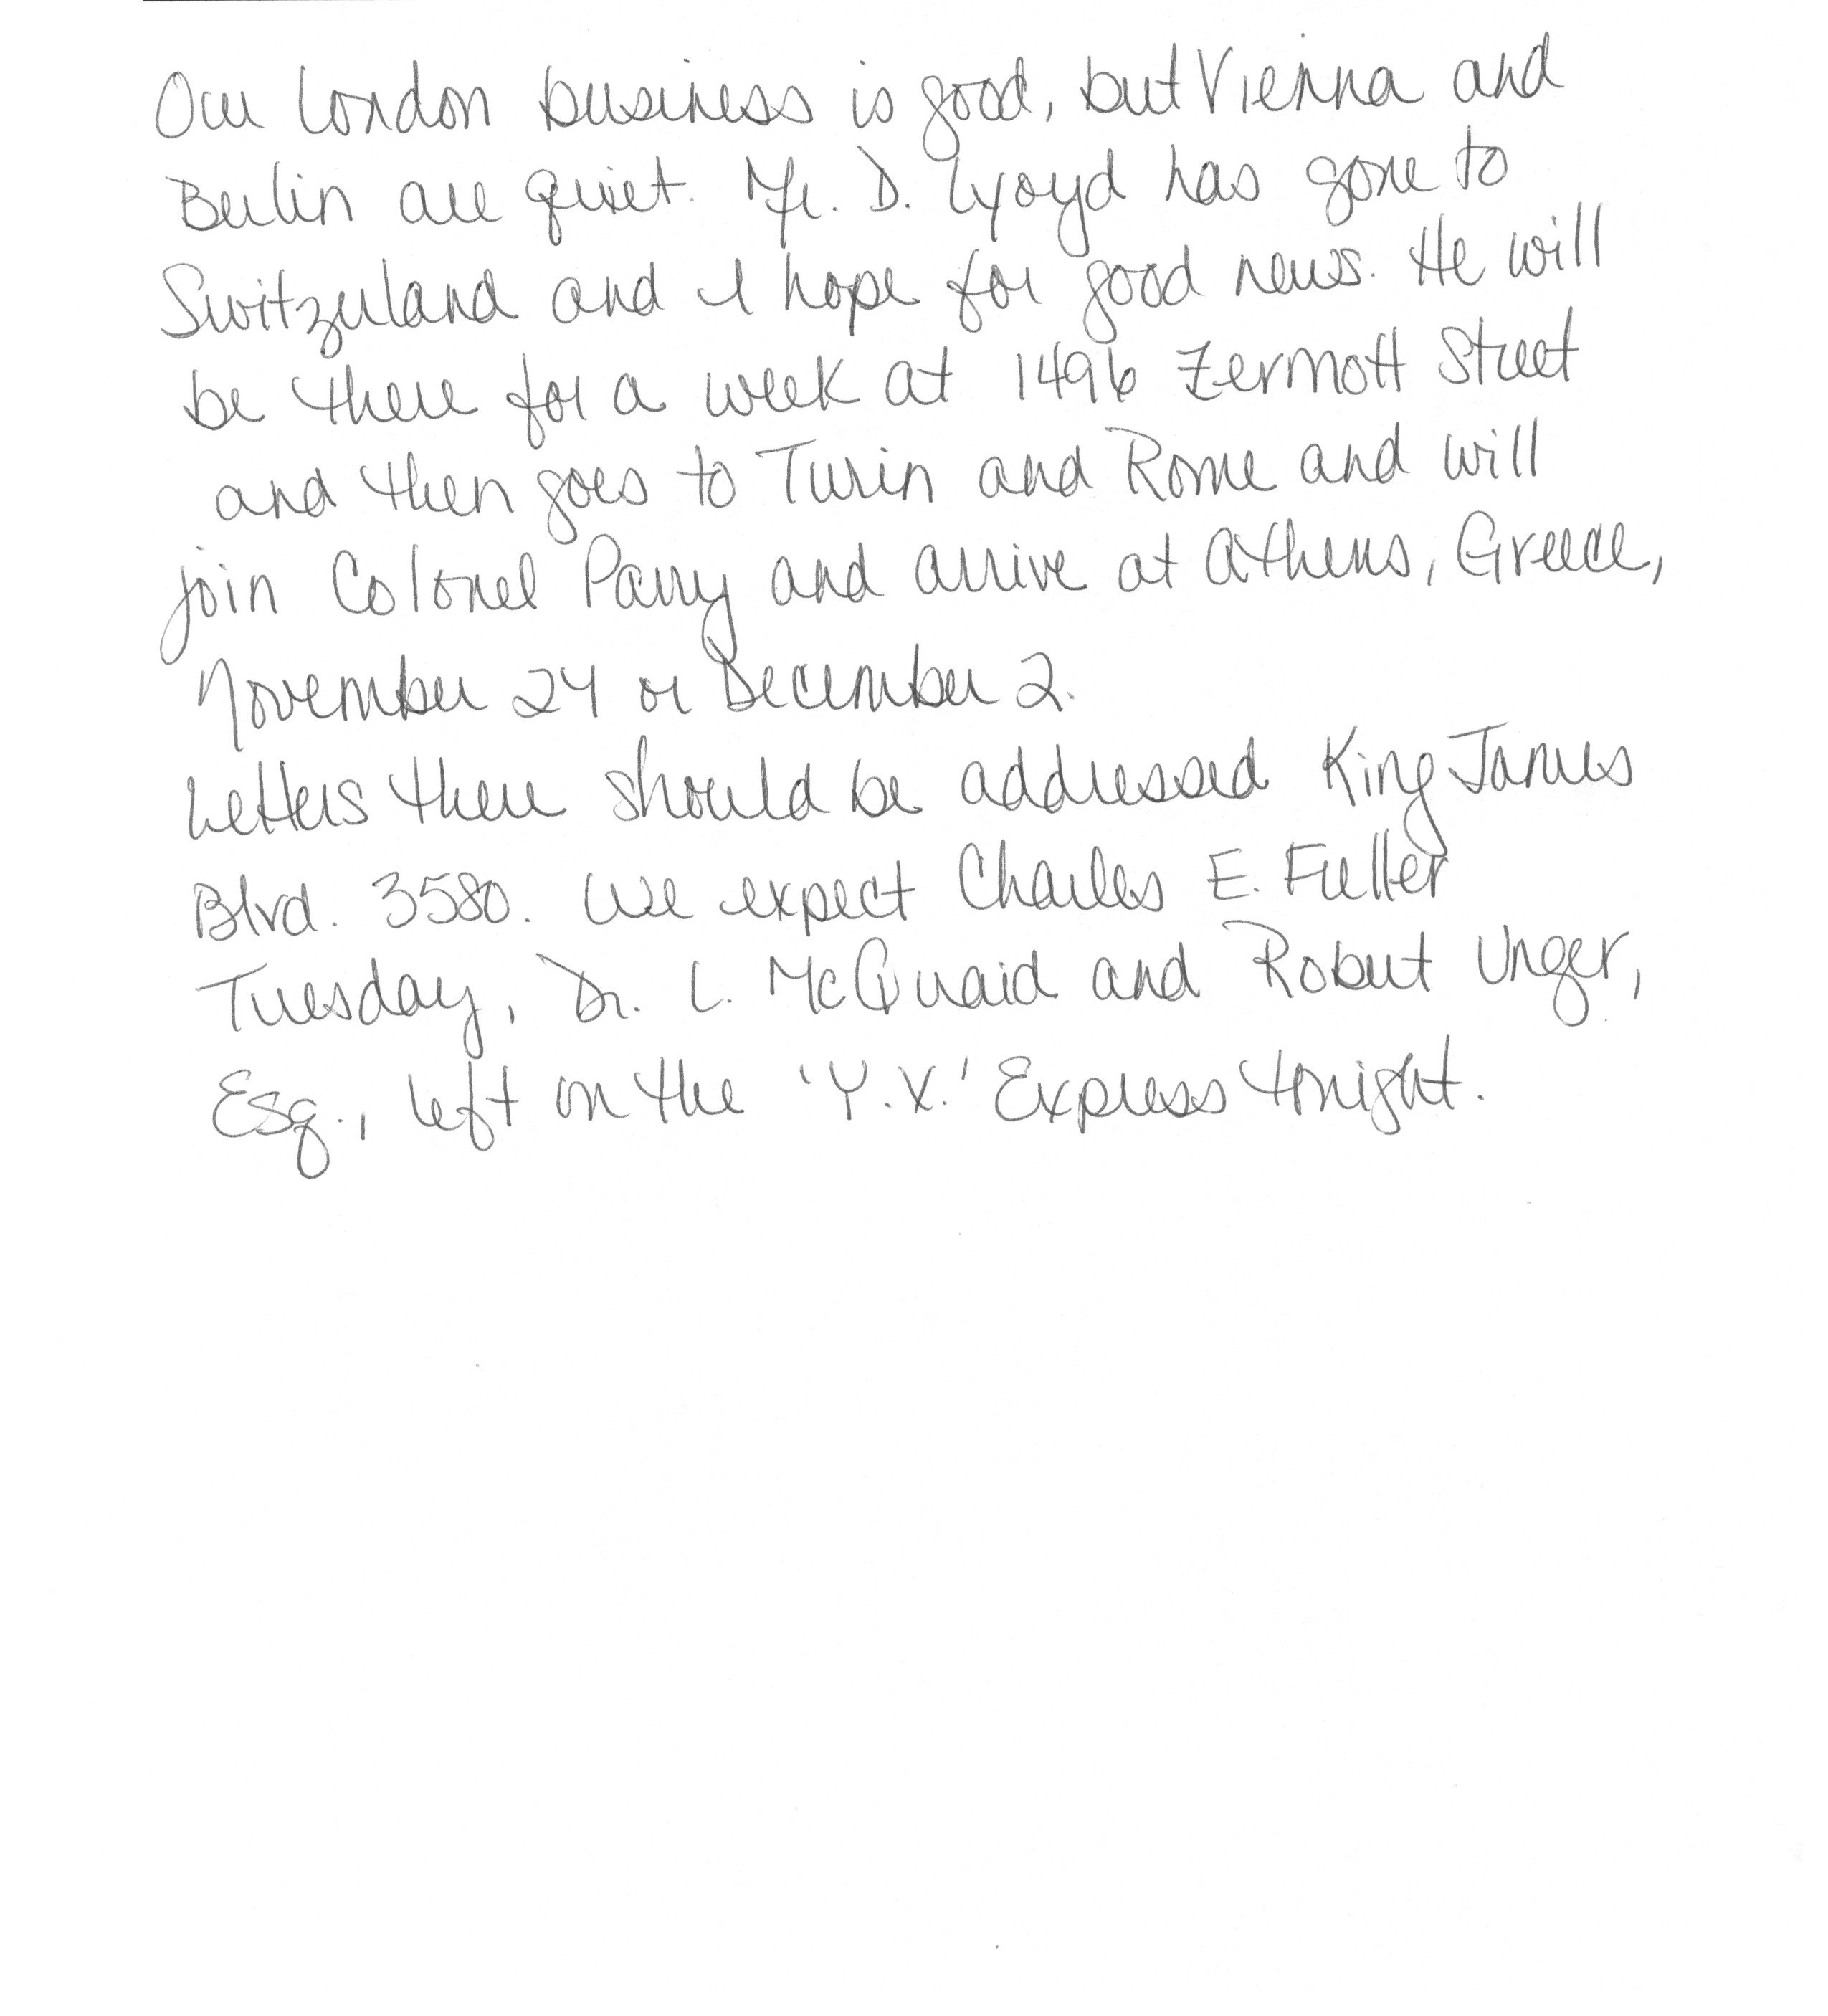 Our London business is good, but Vienna and
Berlin are quiet. Mr. D. Lyoyd has gone to
Switzerland and I hope for good news. He will
be there for a week at 1496 Zermott Street
and then goes to Turin and Rome and will
join Colonel Parry and arrive at Athens, Greece,
November 24 or December 2.
Letters there should be addressed King James
Blvd. 3580. We expect Charles E. Fuller
Tuesday, Dr. L. McQuaid and Robert Unger,
Esq., left on the 'Y.X.' Express tonight.